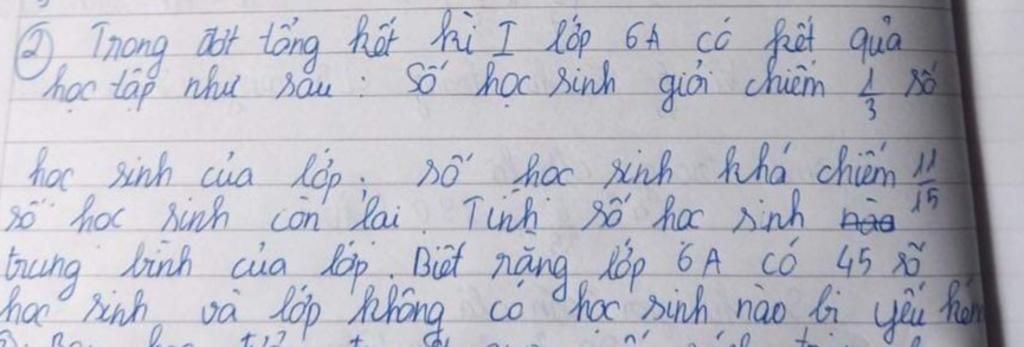 ② Trong đợt tổng kết kì I lớp 6A có kết quả
học tập như sau : Số học sinh giỏi chiếm 1/3 số
học sinh của lớp. số học sinh khá chiếm 11/15
số học sinh còn lại. Tính số học sinh
trung bình của lớp. Biết rằng lớp 6A có 45 số
học sinh và lớp không có học sinh nào bị yếu kém